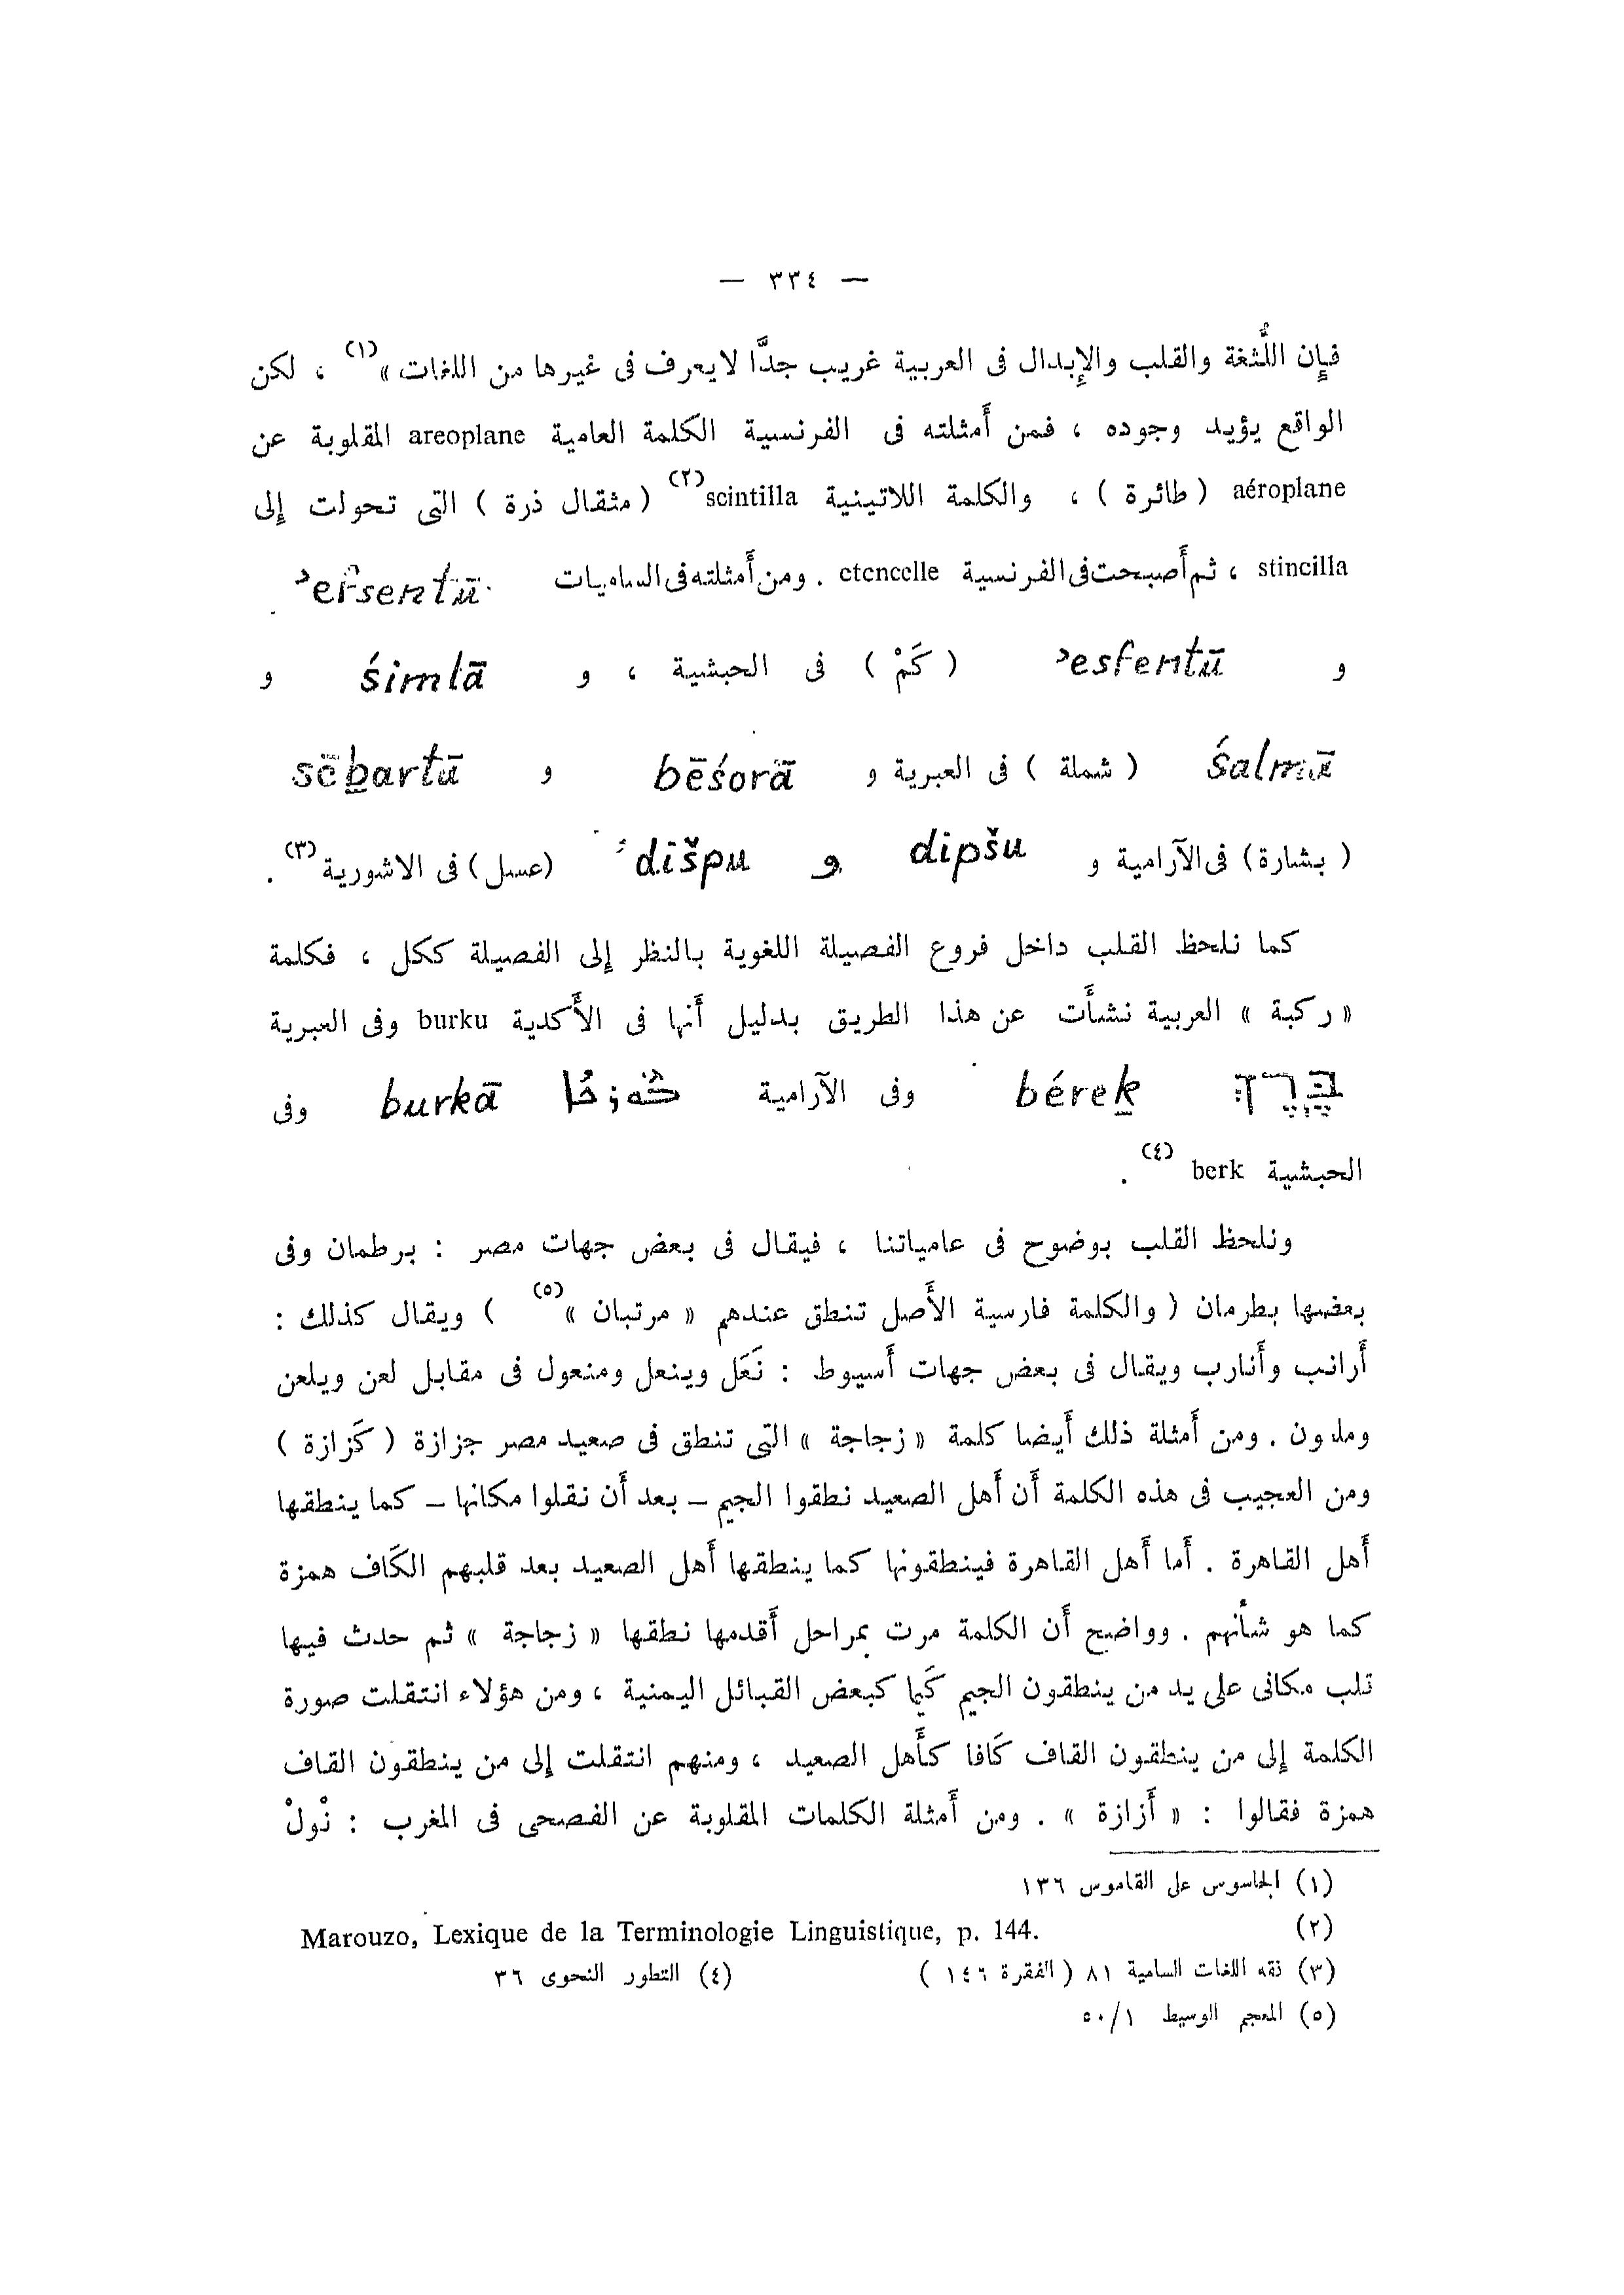 — ٣٣٤ —
فإن اللُّثغة والقلب والإبدال فى العربية غريب جدًّا لايعرف فى غيرها من اللغات » (١) ، لكن
الواقع يؤيد وجوده ، فمن أمثلته فى الفرنسية الكلمة العامية areoplane المقلوبة عن
aéroplane ( طائرة ) ، والكلمة اللاتينية scintilla (٢) ( مثقال ذرة ) التى تحولت إلى
stincilla ، ثم أصبحت فى الفرنسية etencelle . ومن أمثلته فى الساميات
و ʾesfentū ( كَمْ ) فى الحبشية ، و śimlā و
śalmā ( شملة ) فى العبرية و bēśorā و sēḇartā
( بشارة ) فى الآرامية و dipšu و dišpu (عسل) فى الاشورية (٣) .
كما نلحظ القلب داخل فروع الفصيلة اللغوية بالنظر إلى الفصيلة ككل ، فكلمة
« ركبة » العربية نشأت عن هذا الطريق بدليل أنها فى الأكدية burku وفى العبرية
בֶּרֶךְ béreḵ وفى الآرامية burkā وفى
الحبشية berk (٤) .
ونلحظ القلب بوضوح فى عامياتنا ، فيقال فى بعض جهات مصر : برطمان وفى
بعضها بطرمان ( والكلمة فارسية الأصل تنطق عندهم « مرتبان » (٥) ) ويقال كذلك :
أرانب وأنارب ويقال فى بعض جهات أسيوط : نَعَل وينعل ومنعول فى مقابل لعن ويلعن
وملعون . ومن أمثلة ذلك أيضا كلمة « زجاجة » التى تنطق فى صعيد مصر جزازة ( كَزازة )
ومن العجيب فى هذه الكلمة أن أهل الصعيد نطقوا الجيم – بعد أن نقلوا مكانها – كما ينطقها
أهل القاهرة . أما أهل القاهرة فينطقونها كما ينطقها أهل الصعيد بعد قلبهم الكَاف همزة
كما هو شأنهم . وواضح أن الكلمة مرت بمراحل أقدمها نطقها « زجاجة » ثم حدث فيها
قلب مكانى على يد من ينطقون الجيم كَيا كبعض القبائل اليمنية ، ومن هؤلاء انتقلت صورة
الكلمة إلى من ينطقون القاف كَافا كأهل الصعيد ، ومنهم انتقلت إلى من ينطقون القاف
همزة فقالوا : « أزازة » . ومن أمثلة الكلمات المقلوبة عن الفصحى فى المغرب : نْولْ
(١) الجاسوس على القاموس ١٣٦
(٢) Marouzo, Lexique de la Terminologie Linguistique, p. 144.
(٣) فقه اللغات السامية ٨١ ( الفقرة ١٤٦ ) (٤) التطور النحوى ٣٦
(٥) المعجم الوسيط ٥٠/١